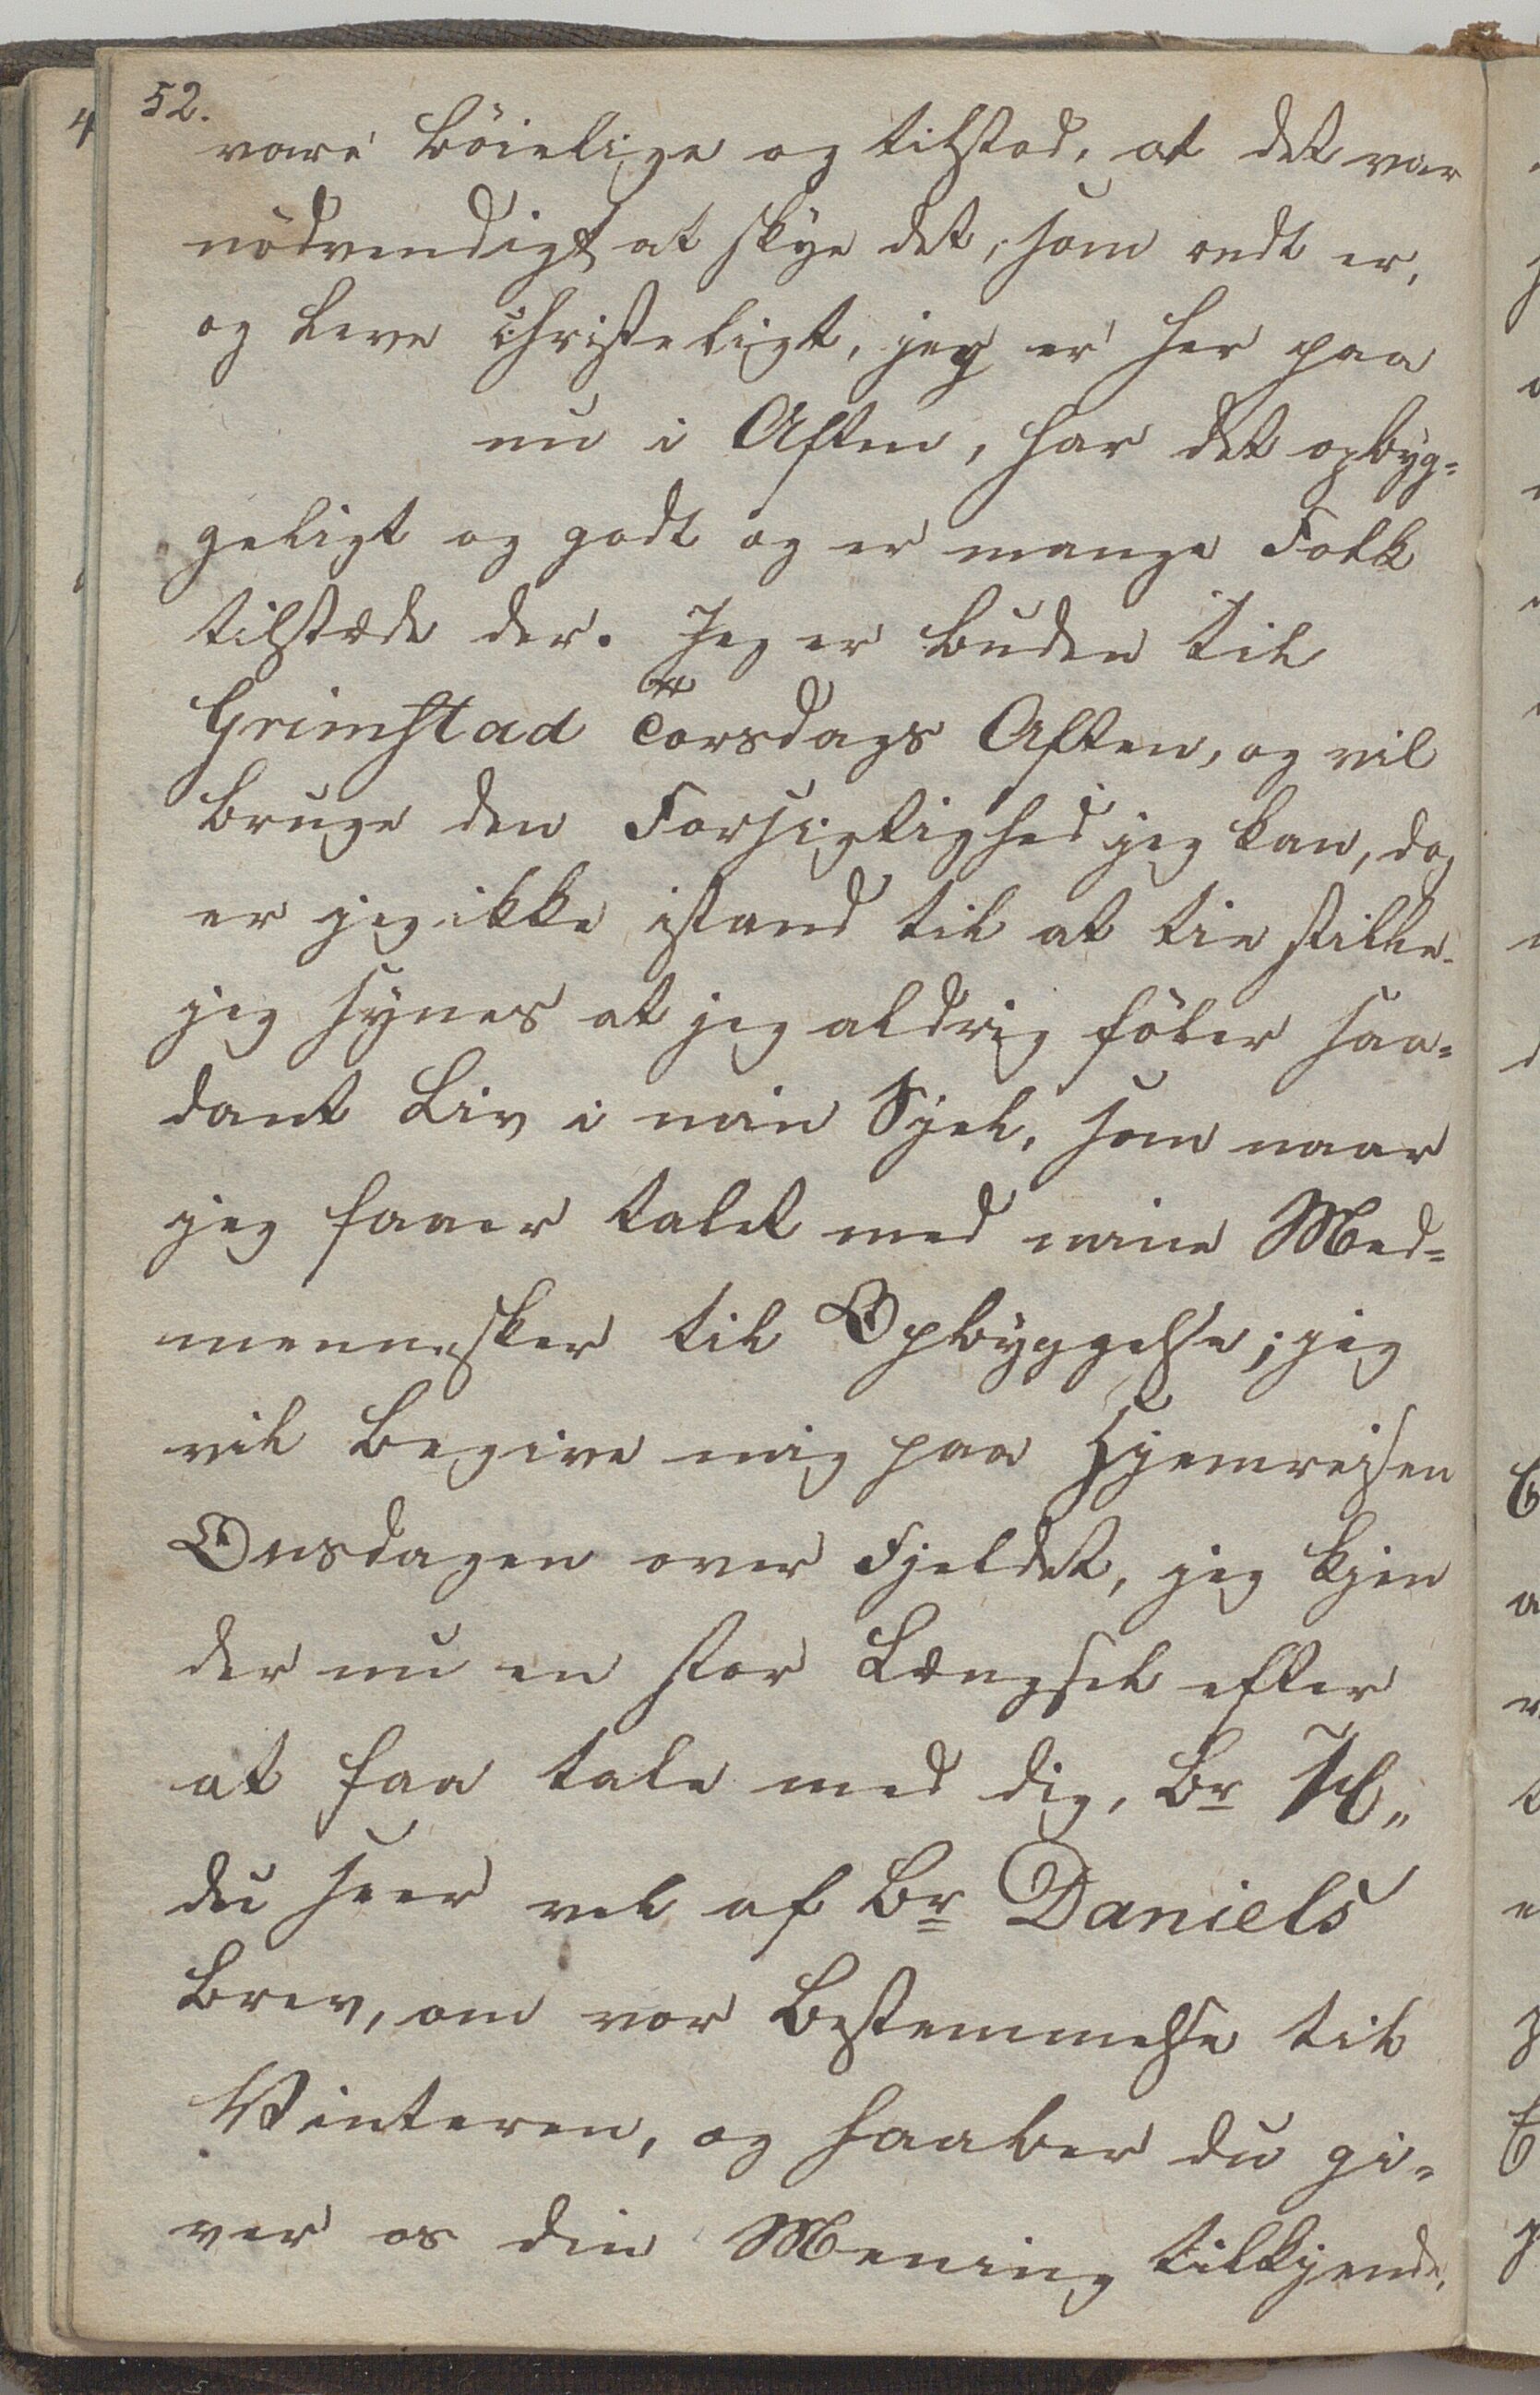 52.
vare böielige og tilstod, at det var
nödvendigt at skye det, som ondt er,
og leve christeligt, jeg er her paa
nu i Aften, har det opbyg=
geligt og godt og er mange Folk
tilstæde der. Jeg er buden til
Grimstad Torsdags Aften, og vil
bruge den Forsigtighed jeg kan, dog
er jeg ikke istand til at tie stille.
jeg synes at jeg aldrig föler saa=
dant Liv i min Sjel, som naar
jeg faaer talet med mine Med=
mennesker til Opbyggelse; jeg
vil begive mig paa Hjemreisen
Onsdagen over Fjeldet, jeg kjen
der nu en stor Længsel efter
at faa tale med dig, Br H„
du seer vel af Br Daniels
Brev, om vor Bestemmelse til
Vinteren, og haaber du gi=
ver os din Mening tilkjende,